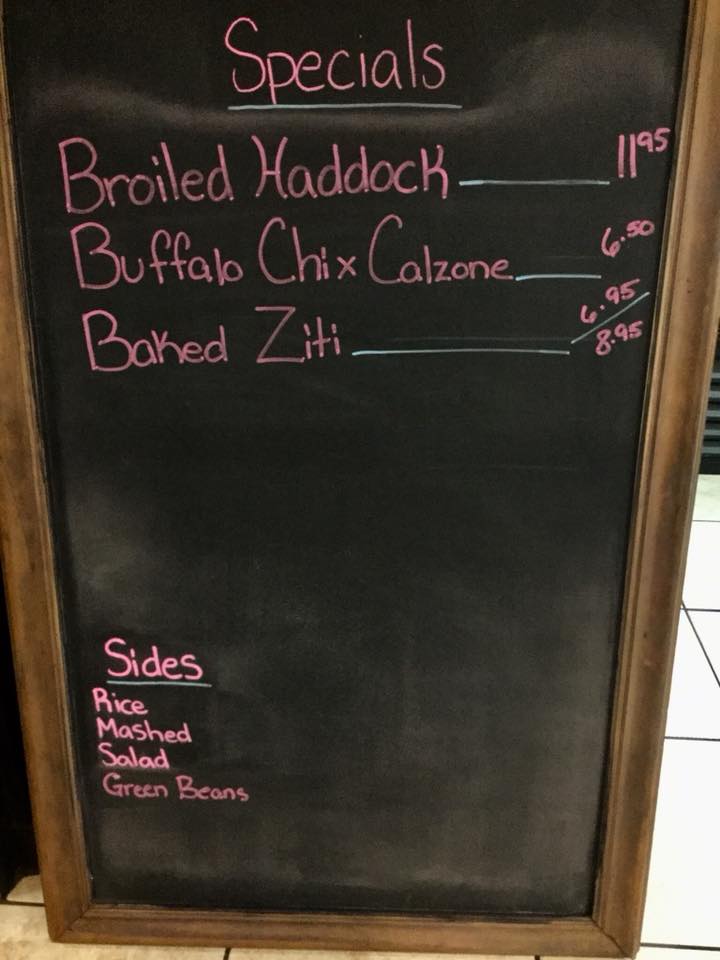 Specials
Broiled Haddock 11 95
Buffalo Chix Calzone 6.50
Baked Ziti 6.95 / 8.95
Sides
Rice
Mashed
Salad
Green Beans